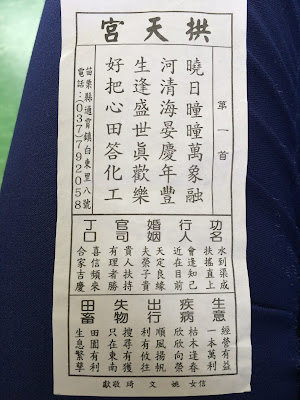 拱天宮
第一首
曉日曈曈萬象融
河清海晏慶年豐
生逢盛世眞歡樂
好把心田答化工
苗栗縣通霄鎮白東里八號
電話:(037)792058
功名
水到渠成
扶搖直上
行人
會逢知己
近在目前
婚姻
天定良緣
夫榮子貴
官司
貴人扶持
有理者勝
丁口
喜信頻來
合家吉慶
生意
經營有益
一本萬利
疾病
枯木逢春
欣欣向榮
出行
順風揚帆
利有攸往
失物
搜尋有獲
只在東南
田畜
田園有利
生息繁孳
信女 姚文琦敬獻